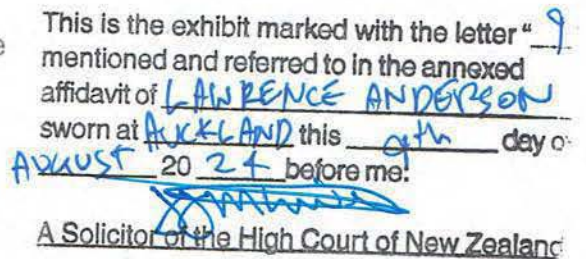 This is the exhibit marked with the letter "9
mentioned and referred to in the annexed
affidavit of LAWRENCE ANDERSON
sworn at AUCKLAND this 9th day o
AUGUST 20 24 before me:
A Solicitor of the High Court of New Zealand